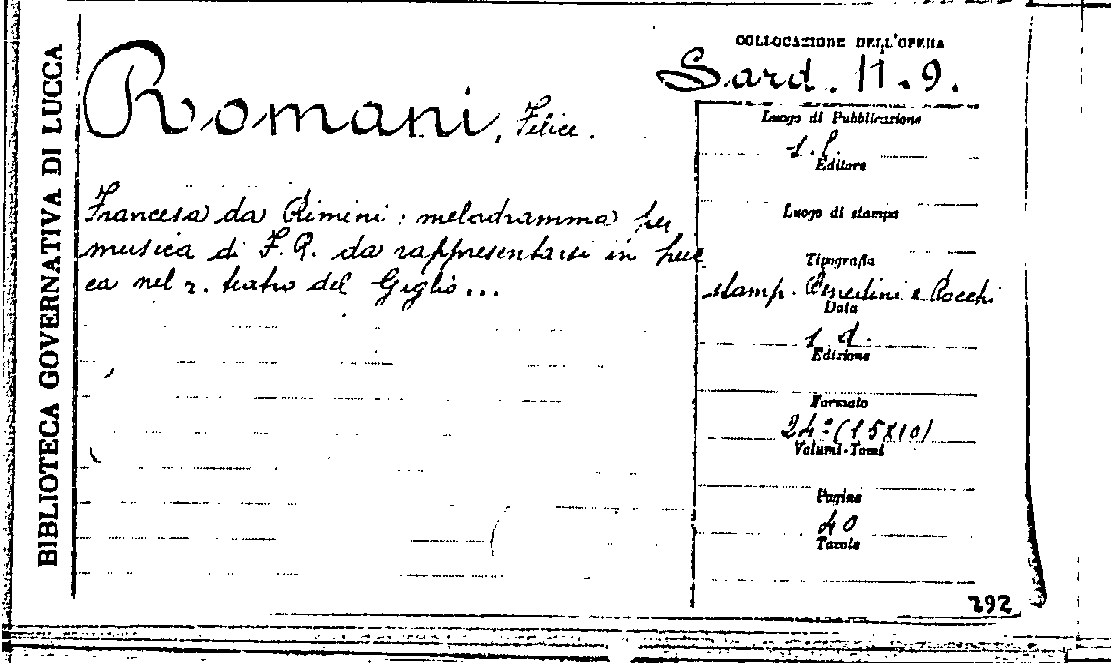 BIBLIOTECA GOVERNATIVA DI LUCCA
COLLOCAZIONE DELL'OPERA
Sard. 11.9.
Romani, Felice.
Francesca da Rimini: melodramma per
musica di F. R. da rappresentarsi in Luc
ca nel r. teatro del Giglio...
Luogo di Pubblicazione
s. l.
Editore
Luogo di stampa
Tipografia
stamp. Benedini e Rocchi
Data
s. d.
Edizione
Formato
24° (15x10)
Volumi-Tomi
Pagine
40
Tavole
292